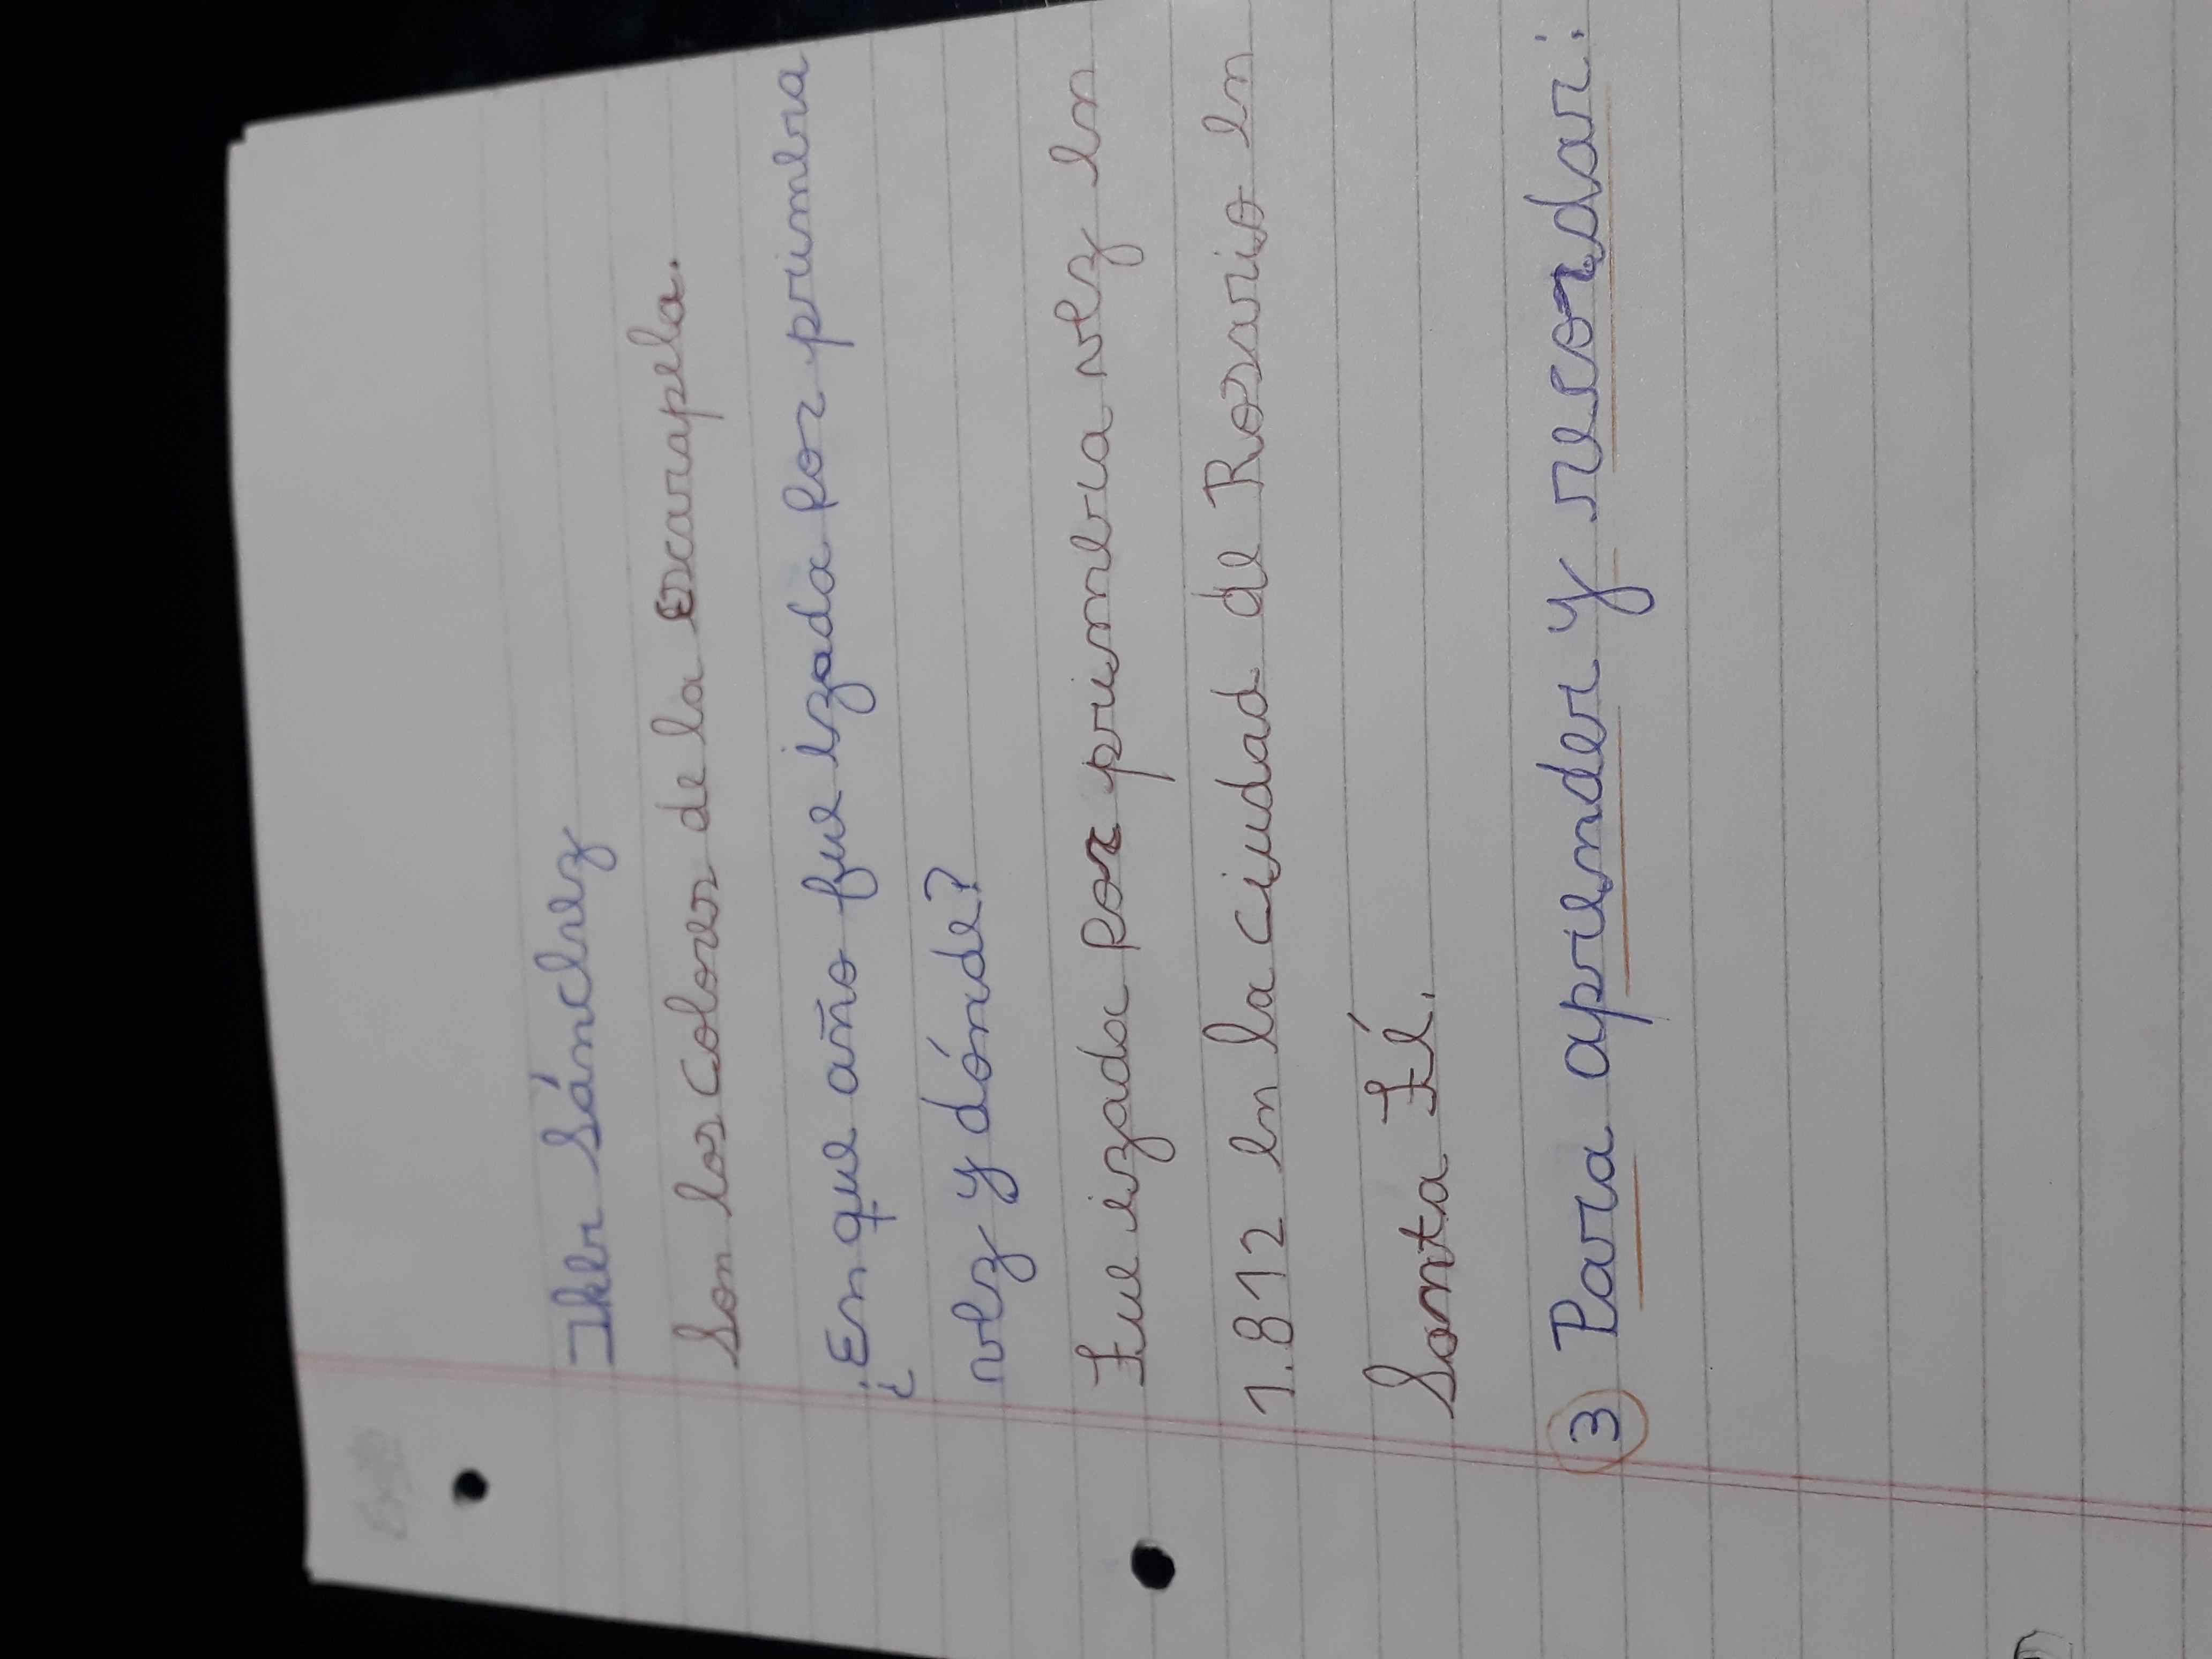 Iker Sánchez
Son los colores de la Escarapela.
¿En que año fue izada por primera
vez y dónde?
Fue izada por primera vez en
1.812 en la ciudad de Rosario en
Santa Fé.
3 Para aprender y recordar: